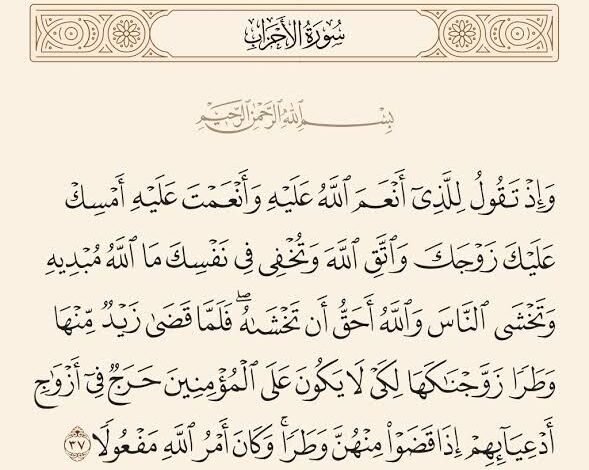 سُورَةُ الأَحْزَابِ
بِسْمِ اللَّهِ الرَّحْمَٰنِ الرَّحِيمِ
وَإِذْ تَقُولُ لِلَّذِىٓ أَنْعَمَ ٱللَّهُ عَلَيْهِ وَأَنْعَمْتَ عَلَيْهِ أَمْسِكْ
عَلَيْكَ زَوْجَكَ وَٱتَّقِ ٱللَّهَ وَتُخْفِى فِى نَفْسِكَ مَا ٱللَّهُ مُبْدِيهِ
وَتَخْشَى ٱلنَّاسَ وَٱللَّهُ أَحَقُّ أَن تَخْشَىٰهُ ۖ فَلَمَّا قَضَىٰ زَيْدٌ مِّنْهَا
وَطَرًا زَوَّجْنَٰكَهَا لِكَىْ لَا يَكُونَ عَلَى ٱلْمُؤْمِنِينَ حَرَجٌ فِىٓ أَزْوَٰجِ
أَدْعِيَآئِهِمْ إِذَا قَضَوْا۟ مِنْهُنَّ وَطَرًا ۚ وَكَانَ أَمْرُ ٱللَّهِ مَفْعُولًا ٣٧